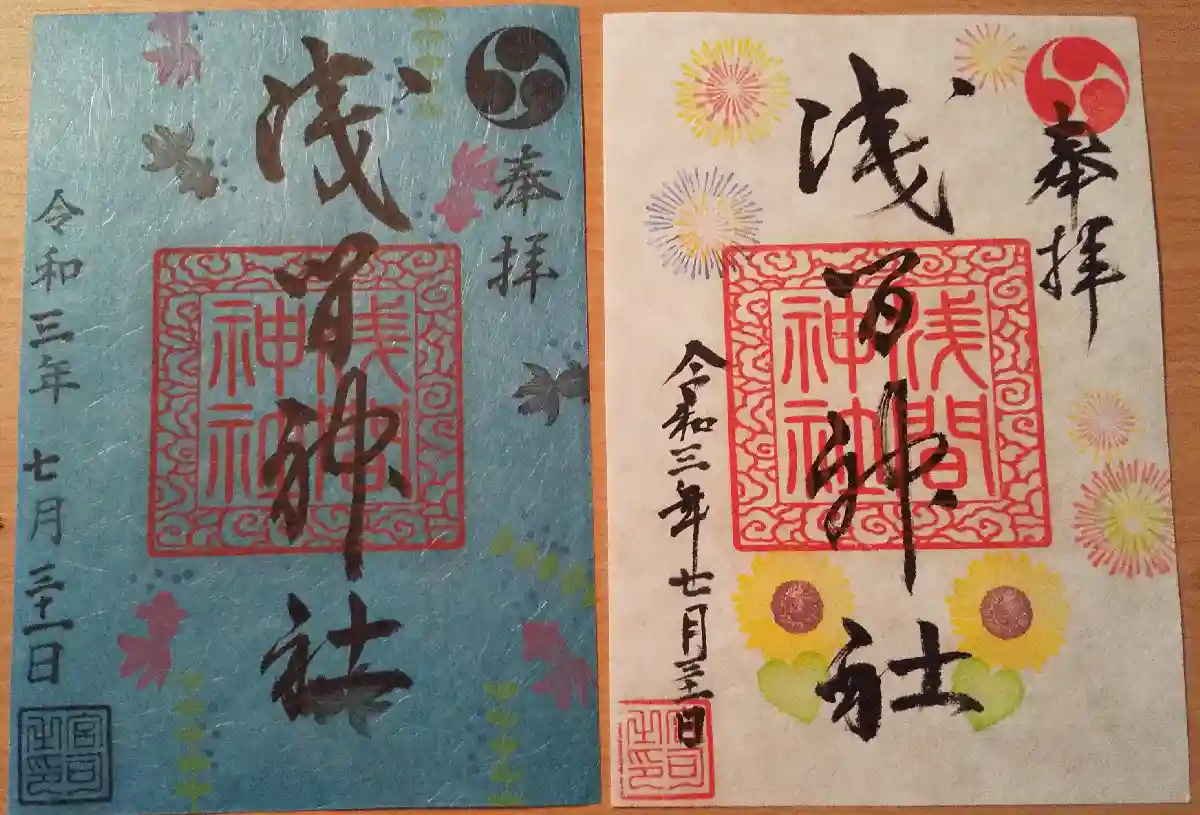 奉拝
浅間神社
浅間神社
令和三年 七月 三十一日
宮司之印
奉拝
浅間神社
浅間神社
令和三年七月三十一日
宮司之印